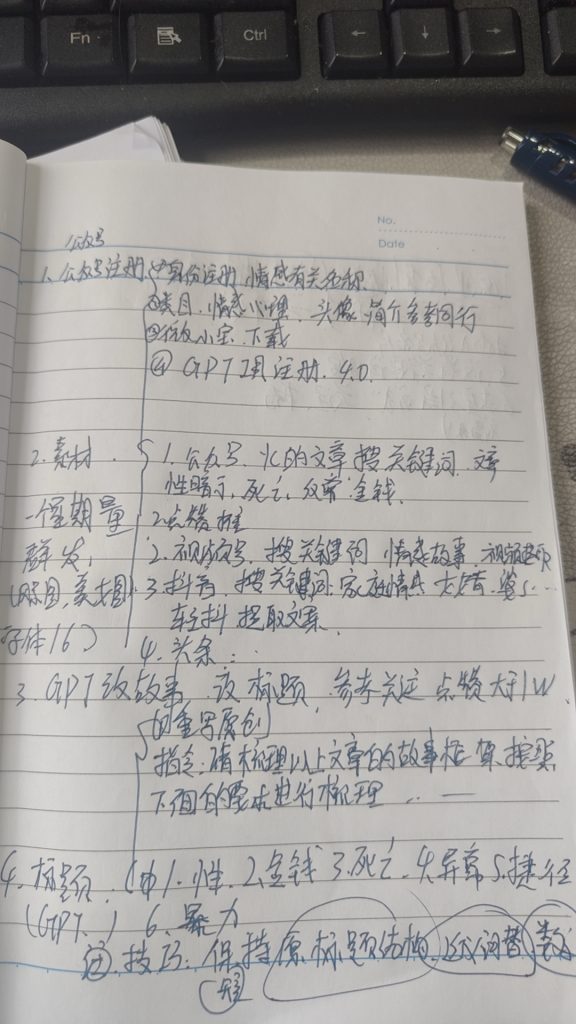 Fn
Ctrl
← ↓ →
No.
Date
公众号
1. 公众号注册 ①身份注册 情感有关名称
②类目. 情感心理. 头像 简介参考同行
③ 小宝 下载
④ GPT 注册. 4.0.
2. 素材. 1. 公众号. 火的文章 搜关键词
性暗示, 死亡, 金钱.
一个星期量 2 点赞 推
群发, 2. 视频号, 搜关键词 情感故事
(原图, 美女图) 3. 抖音, 搜关键词. 家庭情感
字体16) 轻抖 提取文案
4. 头条...
3. GPT 改故事 改标题, 参考关注 点赞大于1W
的重写原创
指令: 请梳理以上文章的故事框架, 按照
下面的要求进行梳理 ... —
4. 标题. ① 1. 性. 2. 金钱 3. 死亡. 4. 异常 5. 捷径
(GPT.) 6. 暴力
② 技巧: 保持原标题结构, 近义词替